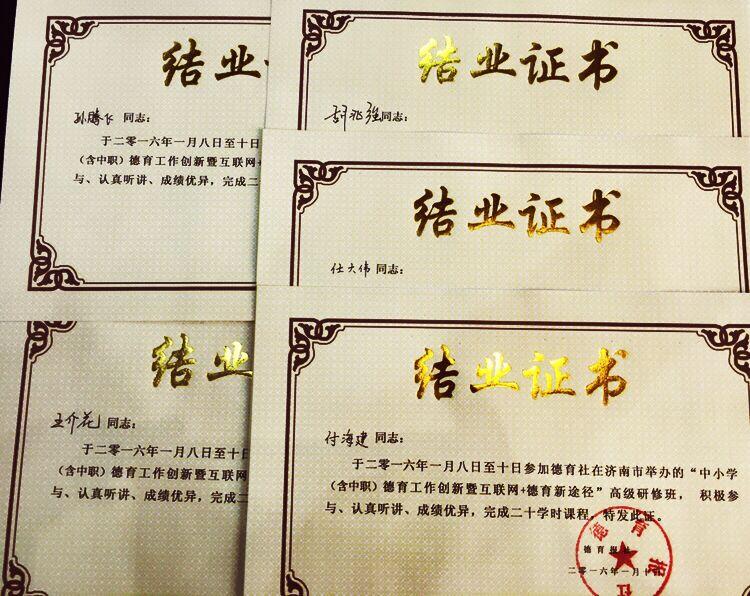 结业
孙腾飞 同志：
于二零一六年一月八日至十日
（含中职）德育工作创新暨互联网+
与、认真听讲、成绩优异，完成二
结业证书
胡兆强同志：
结业证书
仕大伟 同志：
结业
王介花 同志：
于二零一六年一月八日至十日
（含中职）德育工作创新暨互联网
与、认真听讲、成绩优异，完成二十
结业证书
付海建 同志：
于二零一六年一月八日至十日参加德育社在济南市举办的“中小学
（含中职）德育工作创新暨互联网+德育新途径”高级研修班， 积极参
与、认真听讲、成绩优异，完成二十学时课程，特发此证。
德育报社
二零一六年一月十日
德育报社